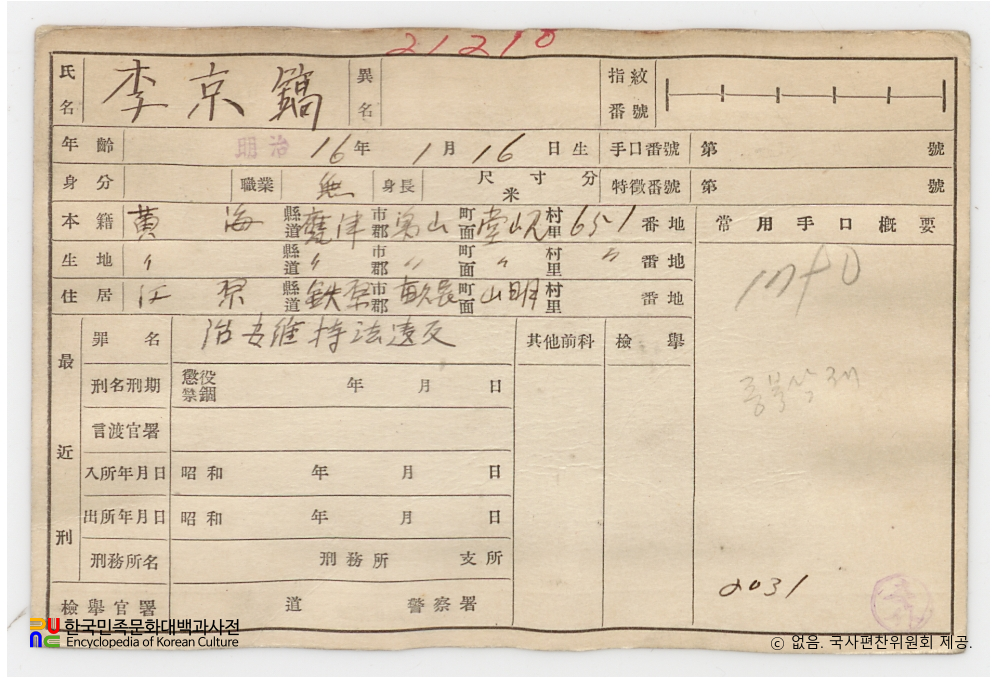 21210
氏名 李京鎬 異名 指紋番號
年齡 明治 16年 1月 16日生 手口番號 第 號
身分 職業 無 身長 尺寸分 米 特徵番號 第 號
本籍 黃海 縣道 津 市郡 山 町面 堂峴 村里 651 番地 常用手口槪要
生地 〃 縣道 〃 市郡 〃 町面 〃 村里 〃 番地
住居 江原 縣道 鉄原 市郡 畝長 町面 山明 村里 番地
最近刑 罪名 治安維持法違反 其他前科 檢擧
刑名刑期 懲役 禁錮 年 月 日
言渡官署
入所年月日 昭和 年 月 日
出所年月日 昭和 年 月 日
刑務所名 刑務所 支所
2031
檢擧官署 道 警察署
한국민족문화대백과사전
Encyclopedia of Korean Culture
ⓒ 없음. 국사편찬위원회 제공.